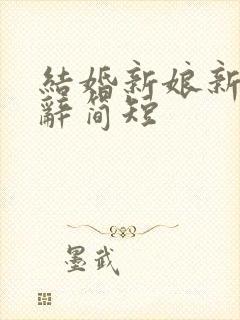 結婚新娘新
辭简短
墨武